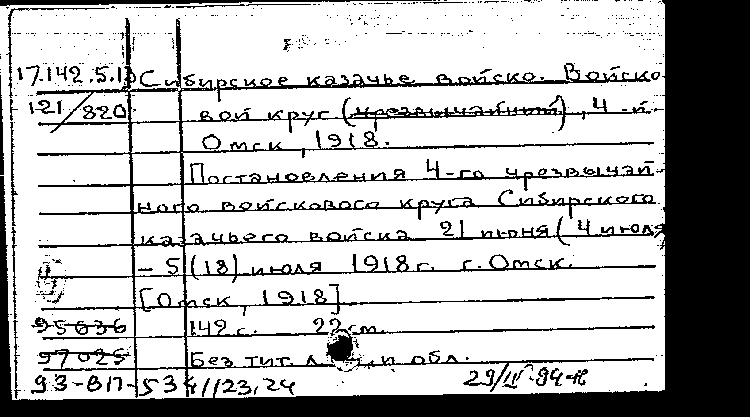 17.142.5.1) Сибирское казачье войско. Войско-
121/820 вой круг (чрезвычайный), 4-й.
Омск, 1918.
Постановления 4-го чрезвычай-
ного войскового круга Сибирского
казачьего войска 21 июня (4 июля)
- 5 (18) июля 1918 г. г. Омск.
[Омск, 1918]
95636 142 с. 22 см.
97025 Без тит. л. и обл.
93-817-534//23,24 29/IV-94